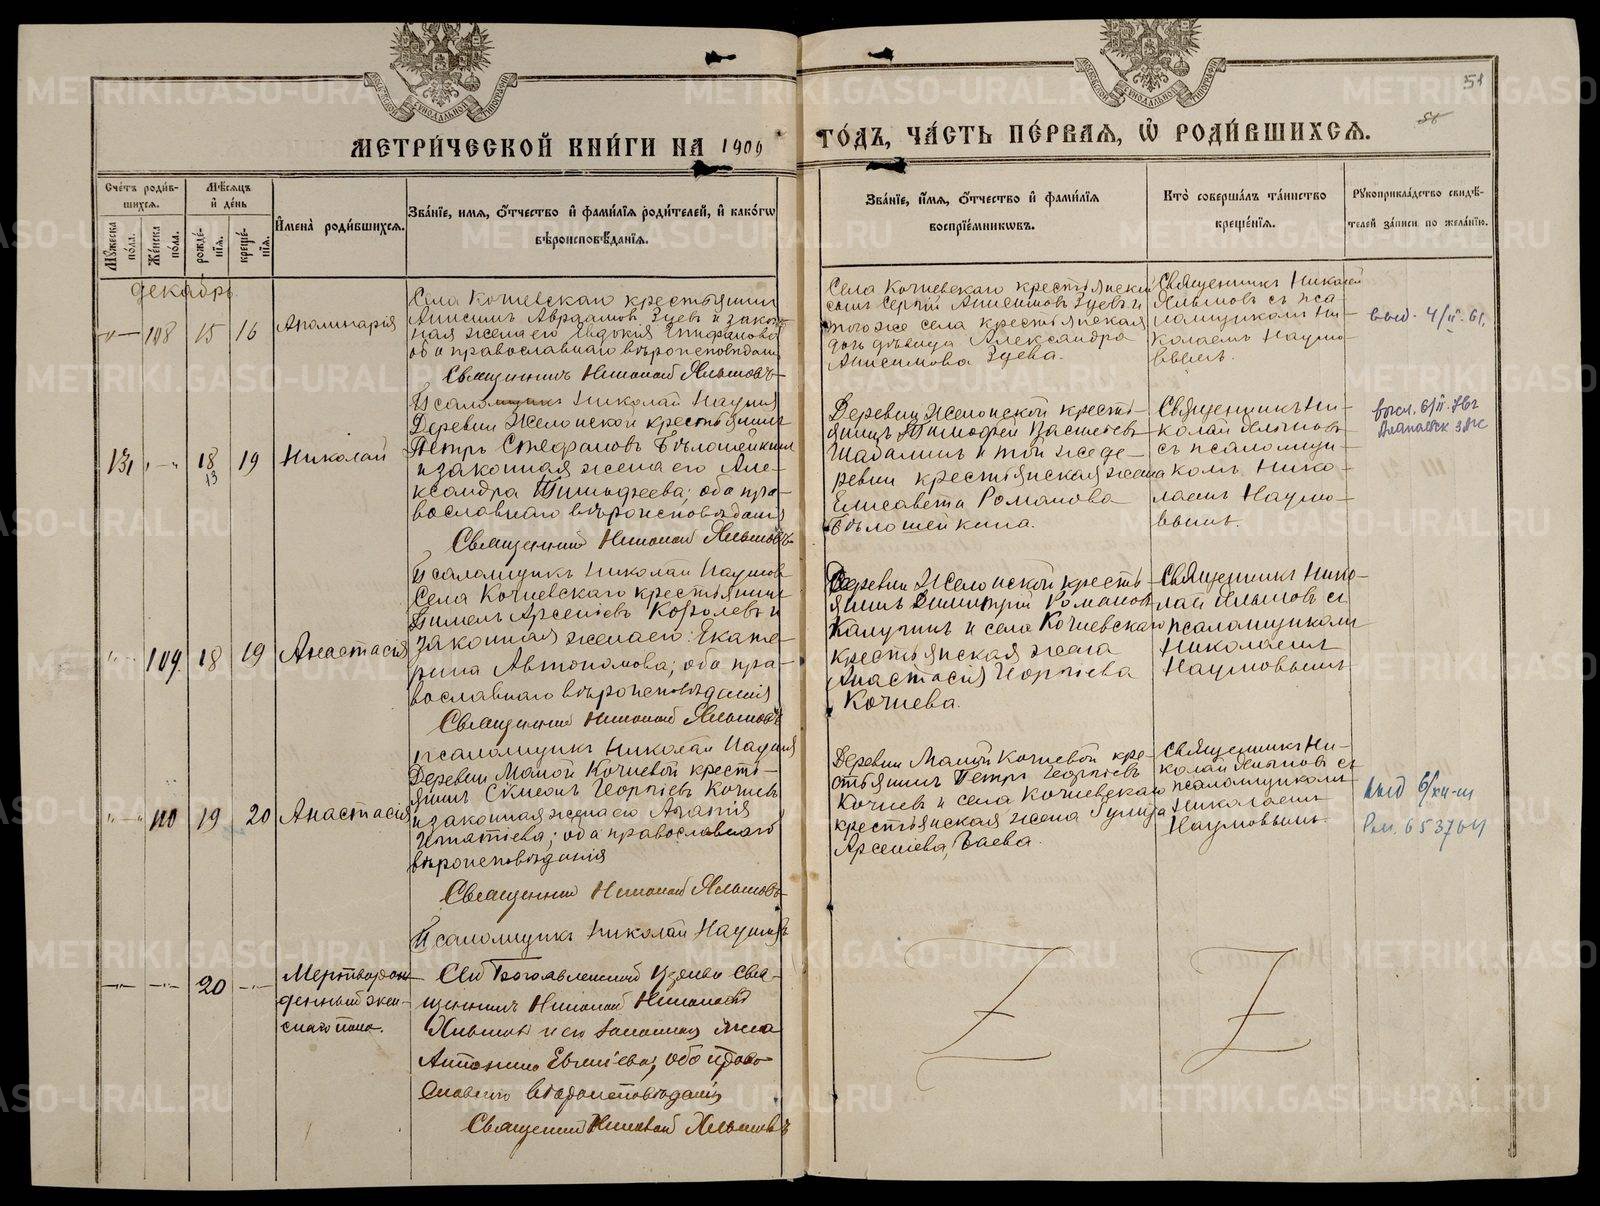 МЕТРИ́ЧЕСКОЙ КНИ́ГИ НА 1909
ГО́ДЪ, ЧА́СТЬ ПЕ́РВАЯ, Ѡ РОДИ́ВШИХСЯ.
51
Сче́тъ роди́в-
шихся.
Му́жеска по́ла.
Же́нска по́ла.
Мѣ́сяцъ
и де́нь
рожде́-
нїя.
креще́-
нїя.
И́мена̀ роди́вшихся.
Зва́нїе, имя, о́тчество и фами́лїя роди́телей, и како́гѡ
вѣроисповѣ́данїя.
Зва́нїе, и́мя, о́тчество и фами́лїя
воспрїе́мниковъ.
Кто̀ соверша́лъ та́инство
креще́нїя.
Рукоприкла́дство свидѣ́-
телей за́писи по жела́нїю.
декабрь
108 15 16 Аполинарія
Села Кочневскаго крестьянинъ
Анисимъ Авраамовъ Зуевъ и закон-
ная жена его Евдокія
оба православнаго вѣроисповѣданія
Священникъ Николай
Псаломщикъ Николай Наумов
Села Кочневскаго крестьянскій
сынъ Сергій Анисимовъ Зуевъ и
того же села крестьянская
дочь дѣвица Александра
Анисимова Зуева.
Священникъ Николай
съ пса-
ломщикомъ Ни-
колаемъ Наумо-
вымъ.
выд. 4/II-61.
131 18 19 Николай
13
Деревни крестьянинъ
Петръ Стефановъ Бѣлошейкинъ
и законная жена его Але-
ксандра Тимофеева; оба пра-
вославнаго вѣроисповѣданія
Священникъ Николай
Псаломщикъ Николай Наумов
Деревни кресть-
янинъ Тимофей Васильевъ
и той же де-
ревни крестьянская жена
Елисавета Романова
Бѣлошейкина.
Священникъ Ни-
колай
съ псаломщи-
комъ Нико-
лаемъ Наумо-
вымъ.
109 18 19 Анастасія
Села Кочневскаго крестьянинъ
Пименъ Арсеніевъ Королевъ и
законная жена его Екате-
рина Автономова; оба пра-
вославнаго вѣроисповѣданія
Священникъ Николай
Псаломщикъ Николай Наумов
Деревни кресть-
янинъ Димитрій Романовъ
и села Кочневскаго
крестьянская жена
Анастасія Георгіева
Кочнева.
Священникъ Нико-
лай съ
псаломщикомъ
Николаемъ
Наумовымъ
110 19 20 Анастасія
Деревни Малой Кочневой кресть-
янинъ Симеонъ Георгіевъ Кочневъ
и законная жена его Агапія
Игнатіева; оба православнаго
вѣроисповѣданія
Священникъ Николай
Псаломщикъ Николай Наумовъ
Деревни Малой Кочневой кре-
стьянинъ Петръ Георгіевъ
Кочневъ и села Кочневскаго
крестьянская жена
Арсеніева Баева.
Священникъ Ни-
колай съ
псаломщикомъ
Николаемъ
Наумовымъ.
выд 6/XII-
20
Мертворож-
денный жен-
скаго пола.
Сей Богоявленской Церкви Свя-
щенникъ Николай Николаевъ
и его законная жена
Антонина Евгеніева; оба право-
славнаго вѣроисповѣданія
Священникъ Николай
METRIKI.GASO-URAL.RU